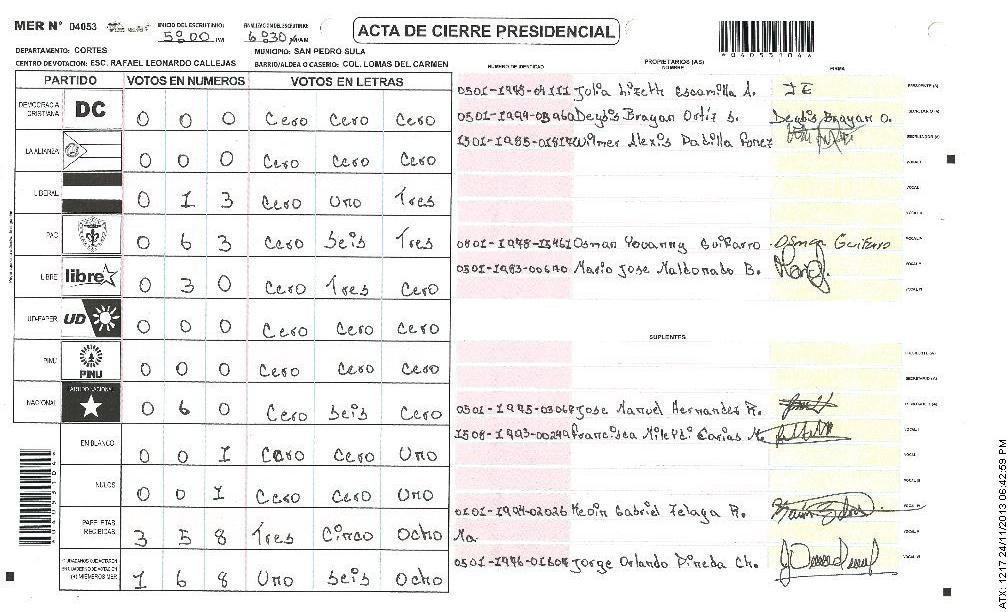 MER N° 04053 INICIO DEL ESCRUTINIO: 5:00 PM FINALIZACION DEL ESCRUTINIO: 6:30 ACTA DE CIERRE PRESIDENCIAL
DEPARTAMENTO: CORTES MUNICIPIO: SAN PEDRO SULA
CENTRO DE VOTACION: ESC. RAFAEL LEONARDO CALLEJAS BARRIO/ALDEA O CASERIO: COL. LOMAS DEL CARMEN
PARTIDO VOTOS EN NUMEROS VOTOS EN LETRAS
DEMOCRACIA CRISTIANA DC 0 0 0 Cero Cero Cero
LA ALIANZA 0 0 0 Cero Cero Cero
LIBERAL 0 1 3 Cero Uno Tres
PAC 0 6 3 Cero Seis Tres
LIBRE libre 0 3 0 Cero Tres Cero
UD-FAPER UD 0 0 0 Cero Cero Cero
PINU PINU 0 0 0 Cero Cero Cero
NACIONAL PARTIDO NACIONAL 0 6 0 Cero Seis Cero
EN BLANCO 0 0 1 Cero Cero Uno
NULOS 0 0 1 Cero Cero Uno
PAPELETAS RECIBIDAS 3 5 8 Tres Cinco Ocho
(+) MIEMBROS MER 1 6 8 Uno Seis Ocho
NUMERO DE IDENTIDAD PROPIETARIOS (AS) NOMBRE FIRMA
Julia Lizeth Escamilla A. JE PRESIDENTE (A)
Deybis Brayan Ortiz S. Deybis Brayan O. SECRETARIO (A)
Wilmer Alexis Padilla Ponez ESCRUTADOR (A)
VOCAL I
VOCAL
VOCAL
Osman Yovanny Guifarro Osman Guifarro VOCAL
0501-1983-00670 Mario Jose Maldonado B. VOCAL
VOCAL
SUPLENTES
PRESIDENTE (A)
SECRETARIO (A)
0501-1975-03068 Jose Manuel Hernandes R.
1508-1993-00299 Francisca VOCAL
VOCAL
VOCAL
0101-1994-02026 Kevin Gabriel Zelaya R. VOCAL
Ma.
0501-1976-01604 Jorge Orlando Pineda Ch. VOCAL
ATX: 1217 24/11/2013 06:42:59 PM